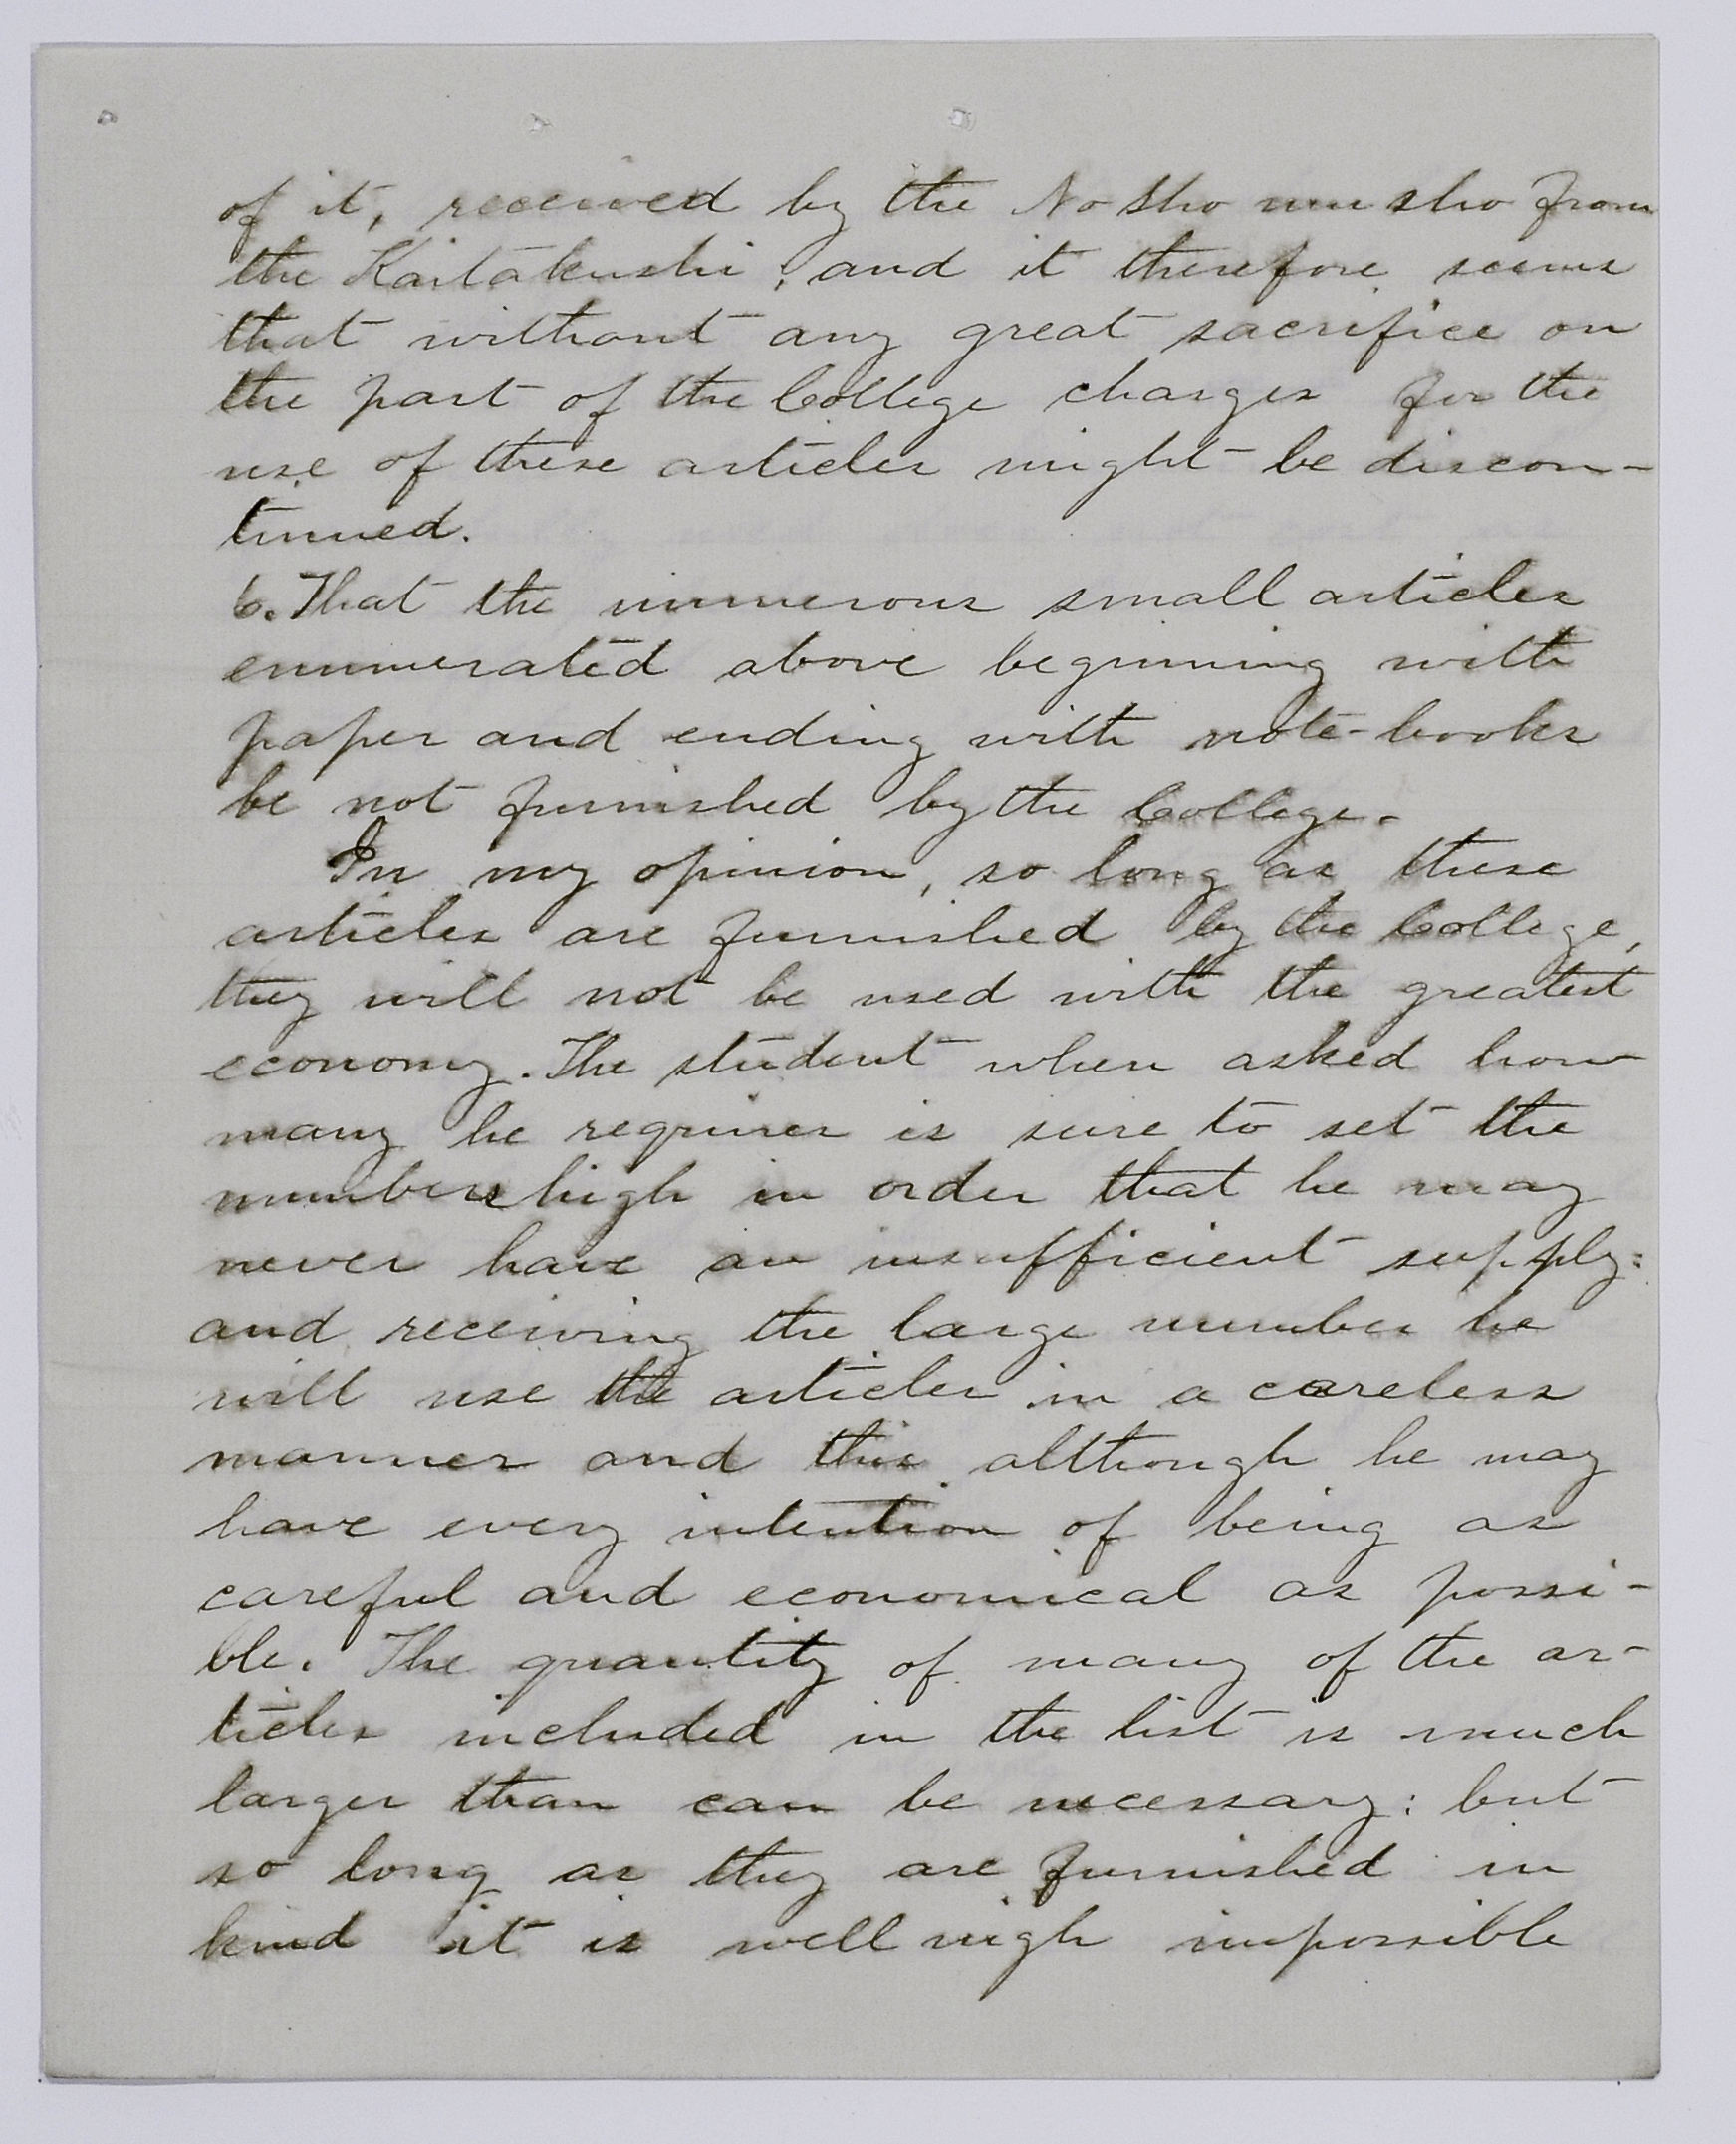 of it, received by the No Sho mu sho from
the Kaitakushi; and it therefore seems
that without any great sacrifice on
the part of the College charges for the
use of these articles might be discon-
tinued.
6. That the numerous small articles
enumerated above beginning with
paper and ending with note-books
be not furnished by the College.
In my opinion, so long as these
articles are furnished by the College,
they will not be used with the greatest
economy. The student when asked how
many he requires is sure to set the
numbers high in order that he may
never have an insufficient supply:
and receiving the large number he
will use the articles in a careless
manner and this although he may
have every intention of being as
careful and economical as possi-
ble. The quantity of many of the ar-
ticles included in the list is much
larger than can be necessary: but
so long as they are furnished in
kind it is well nigh impossible